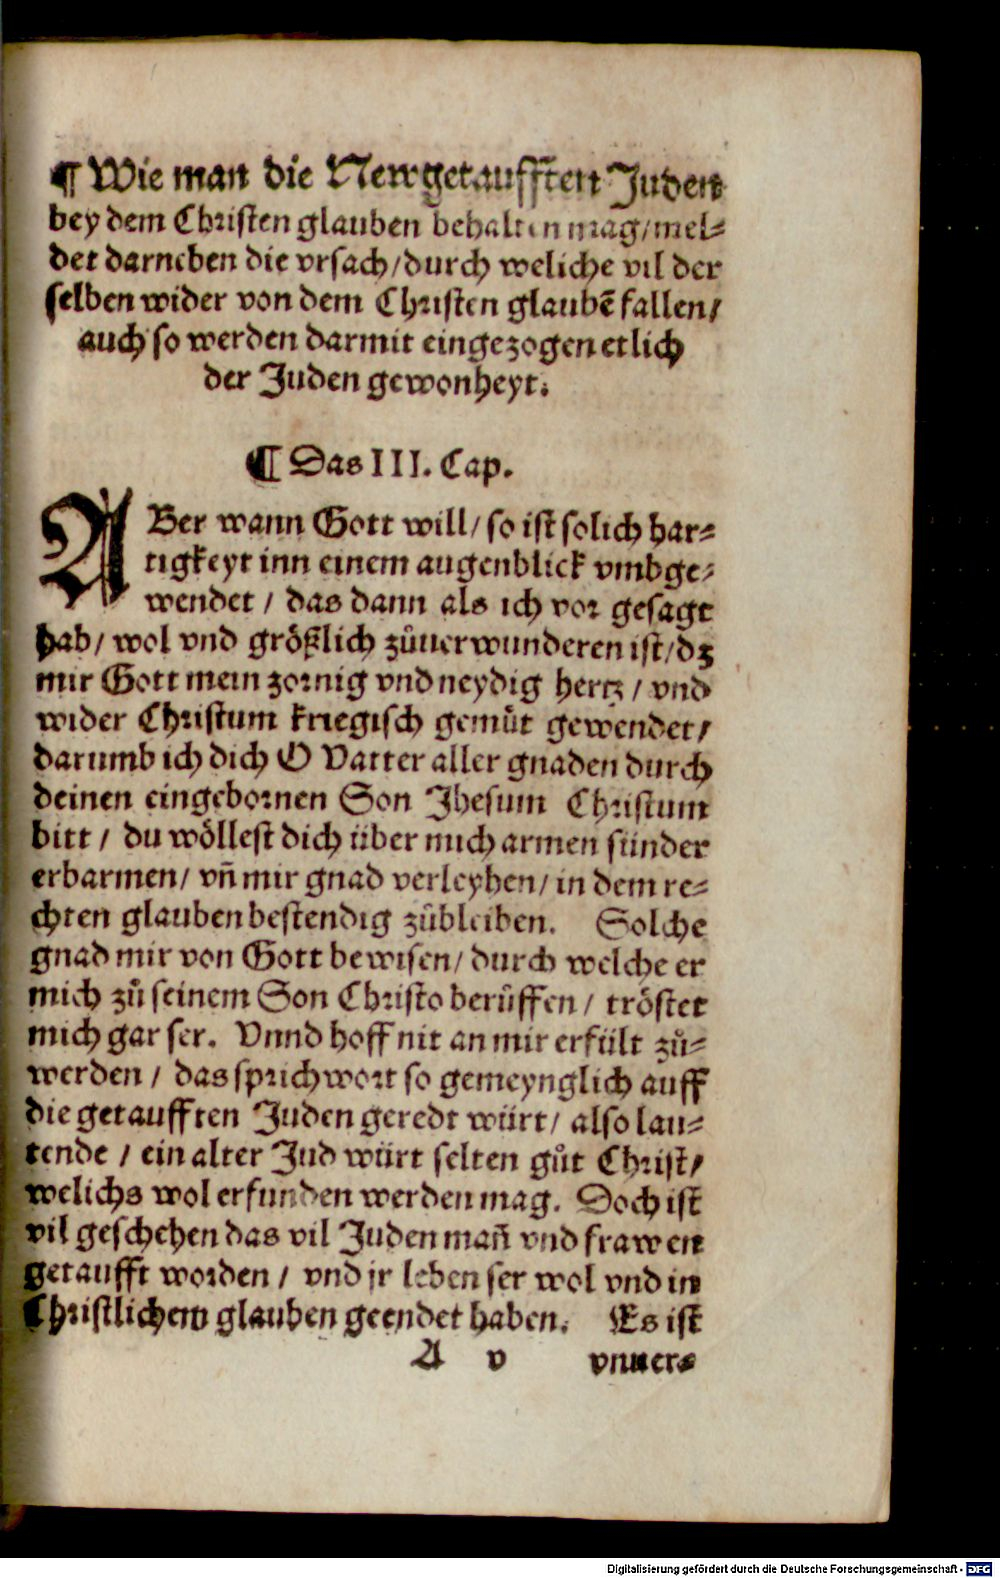 ¶ Wie man die Newgetaufften Juden
bey dem Christen glauben behalten mag/mel⸗
det darneben die vrsach/durch weliche vil der
selben wider von dem Christen glaubē fallen/
auch so werden darmit eingezogen etlich
der Juden gewonheyt.
¶ Das III. Cap.
ABer wann Gott will/ so ist solich har⸗
tigkeyt inn einem augenblick vmbge⸗
wendet / das dann als ich vor gesagt
hab/ wol vnd größlich zůuerwunderen ist/dz
mir Gott mein zornig vnd neydig hertz / vnd
wider Christum kriegisch gemůt gewendet/
darumb ich dich O Vatter aller gnaden durch
deinen eingebornen Son Jhesum Christum
bitt / du wöllest dich über mich armen sünder
erbarmen/ vñ mir gnad verleyhen/ in dem re⸗
chten glauben bestendig zůbleiben. Solche
gnad mir von Gott bewisen/ durch welche er
mich zů seinem Son Christo berůffen / tröstet
mich gar ser. Vnnd hoff nit an mir erfült zů⸗
werden / das sprichwort so gemeynglich auff
die getaufften Juden geredt würt/ also lau⸗
tende / ein alter Jud würt selten gůt Christ/
welichs wol erfunden werden mag. Doch ist
vil geschehen das vil Juden mañ vnd frawen
getaufft worden / vnd jr leben ser wol vnd in
Christlichem glauben geendet haben. Es ist
A v vnuer⸗
Digitalisierung gefördert durch die Deutsche Forschungsgemeinschaft - DFG